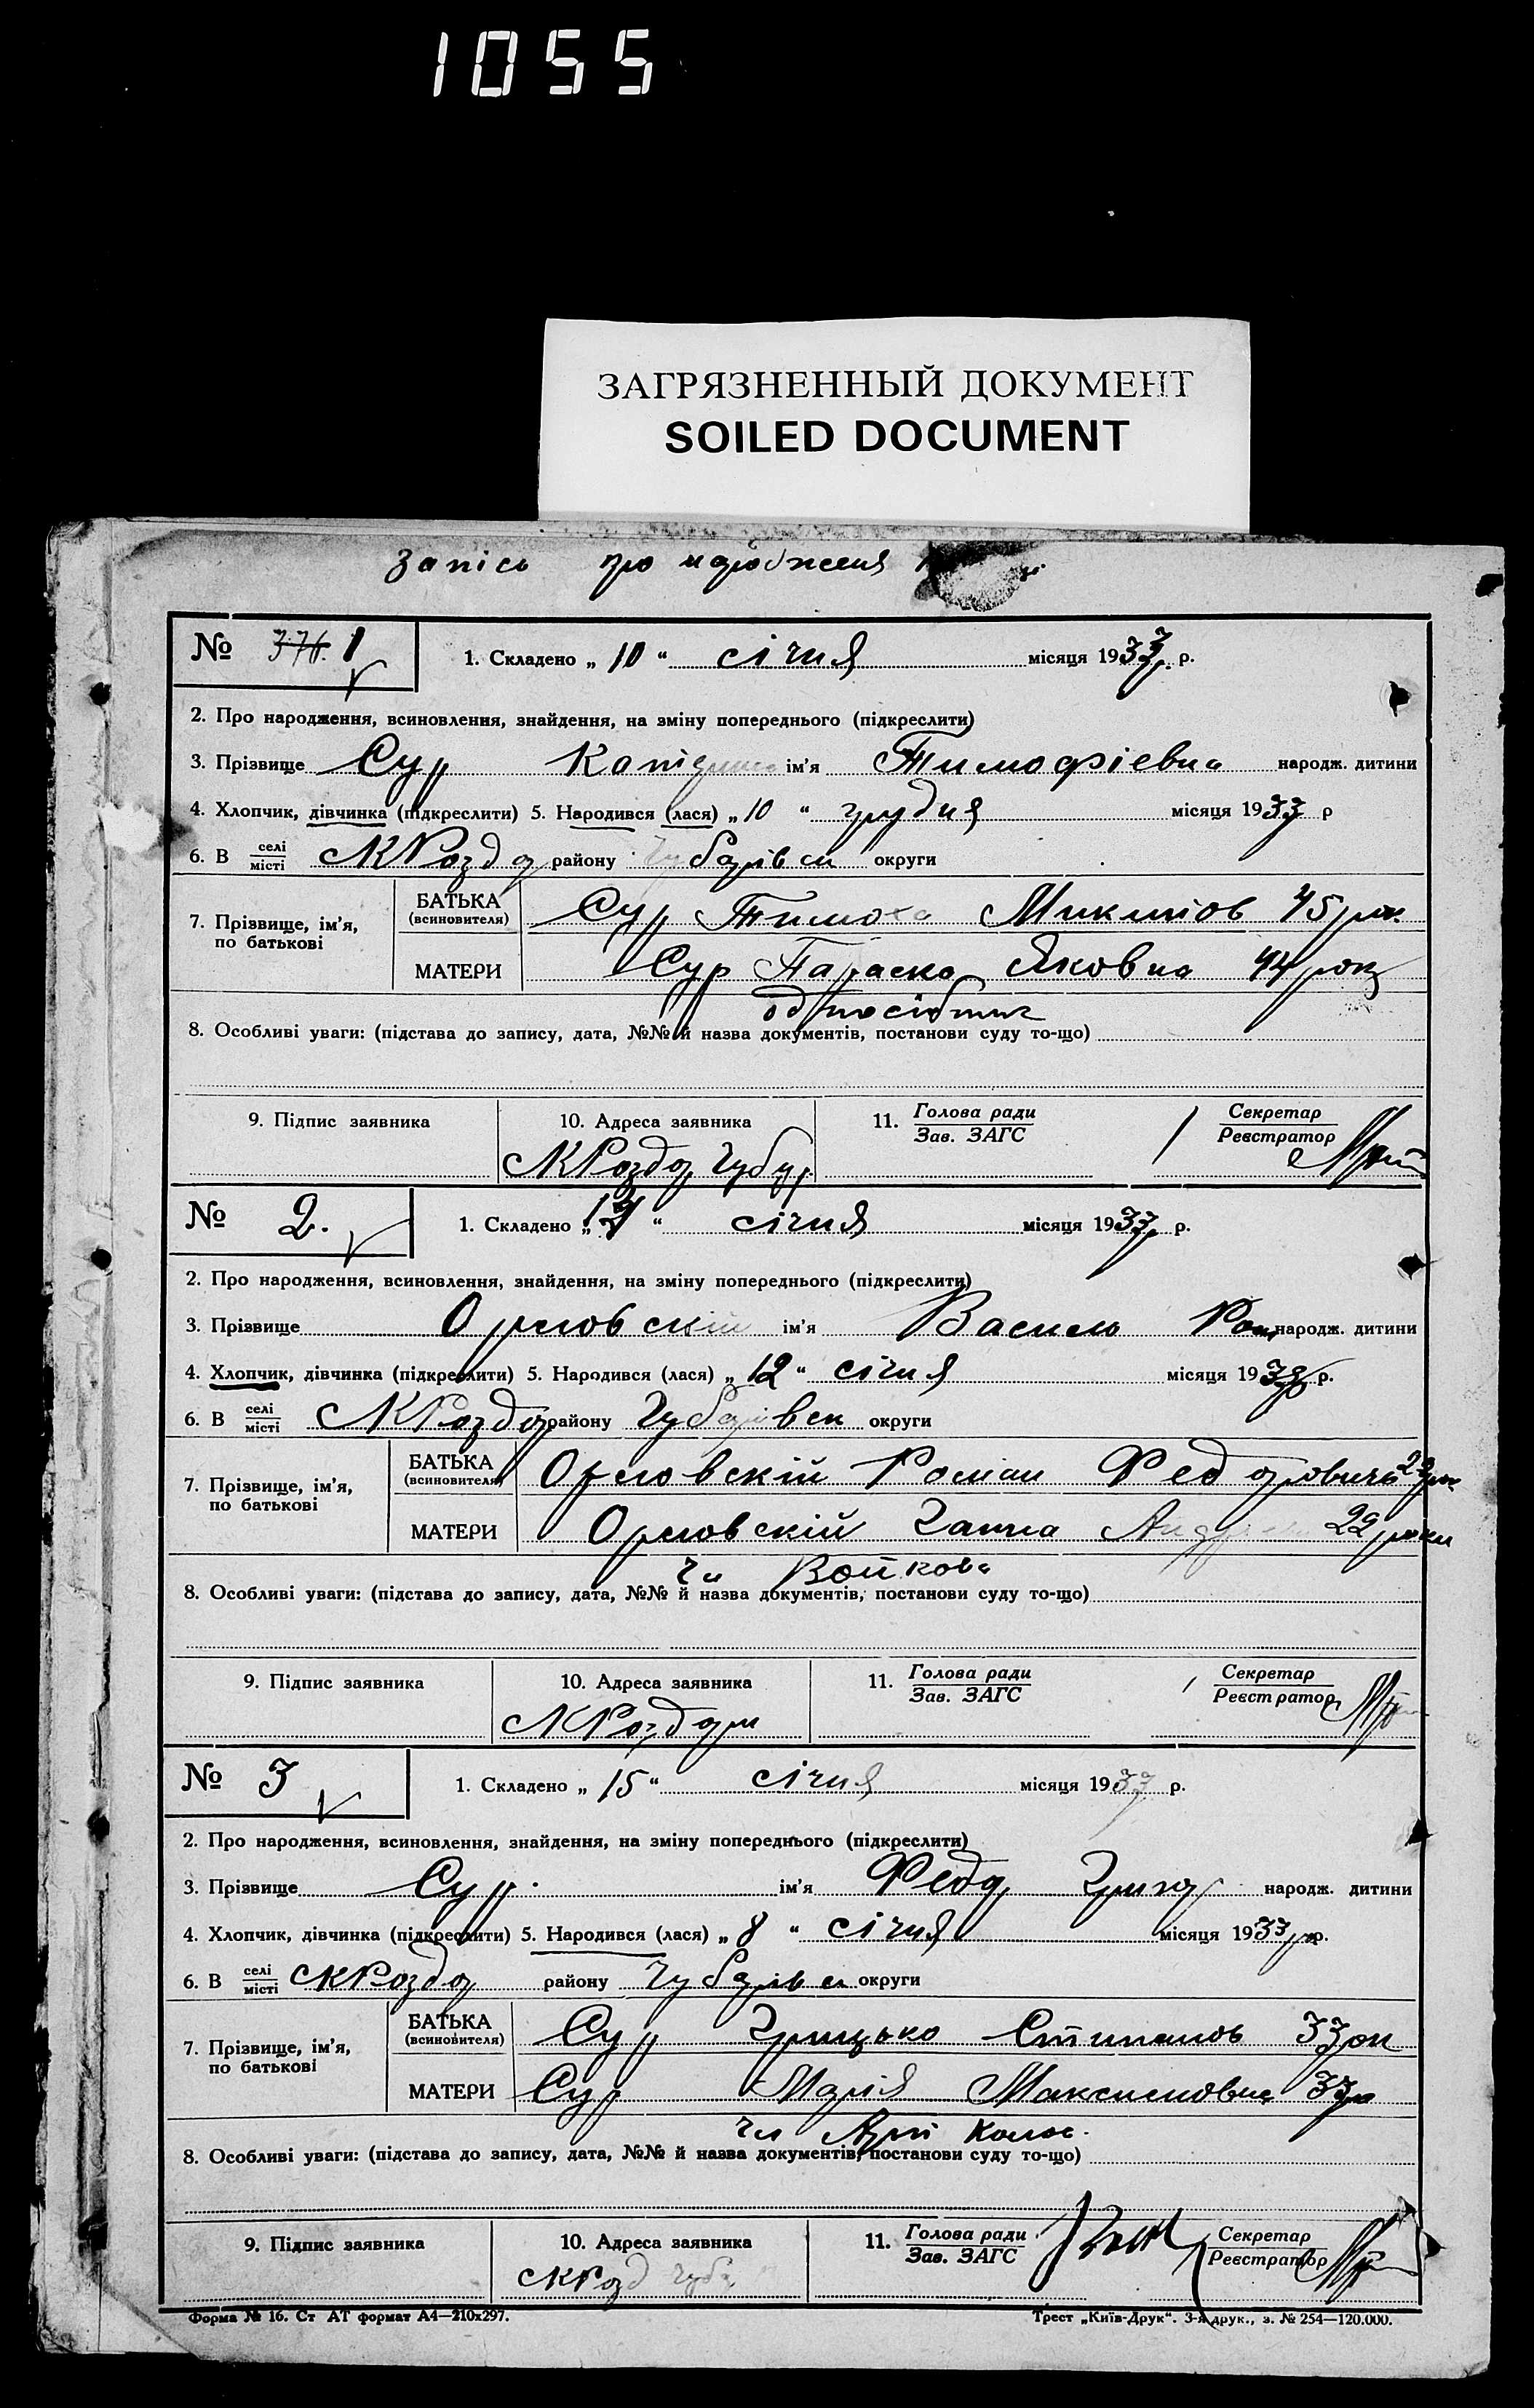 1055
ЗАГРЯЗНЕННЫЙ ДОКУМЕНТ
SOILED DOCUMENT
запісь про народження
№ 376. 1 1. Складено „ 10 “ січня місяця 1933 р. р.
2. Про народження, всиновлення, знайдення, на зміну попереднього (підкреслити)
3. Прізвище Сур ім'я Тимофіевна народж. дитини
4. Хлопчик, дівчинка (підкреслити) 5. Народився (лася) „ 10 “ грудня місяця 1933 р
6. В селі місті СКРоздор району Чубарівск округи
7. Прізвище, ім'я, по батькові
БАТЬКА (всиновителя) Сур Тимоха Микитов 45 рок
МАТЕРИ Сур Параска Яковна 44 рок
односібник
8. Особливі уваги: (підстава до запису, дата, №№ й назва документів, постанови суду то-що)
9. Підпис заявника 10. Адреса заявника 11. Голова ради Зав. ЗАГС Секретар Реєстратор
СКРоздор Чубар
№ 2. 1. Складено „ “ січня місяця 1933 р.
2. Про народження, всиновлення, знайдення, на зміну попереднього (підкреслити)
3. Прізвище Орловскій ім'я Василь Ром народж. дитини
4. Хлопчик, дівчинка (підкреслити) 5. Народився (лася) „ 12 “ січня місяця 1933 р.
6. В селі місті СКРоздор району Чубарівск округи
7. Прізвище, ім'я, по батькові
БАТЬКА (всиновителя) Орловскій Роман Федорович 22 рок
МАТЕРИ Орловскій Ганна 22 роки
чл Войкова
8. Особливі уваги: (підстава до запису, дата, №№ й назва документів, постанови суду то-що)
9. Підпис заявника 10. Адреса заявника 11. Голова ради Зав. ЗАГС Секретар Реєстратор
СКРоздори
№ 3 1. Складено „ 15 “ січня місяця 1933 р.
2. Про народження, всиновлення, знайдення, на зміну попереднього (підкреслити)
3. Прізвище Сур. ім'я Федор Григор народж. дитини
4. Хлопчик, дівчинка (підкреслити) 5. Народився (лася) „ 8 “ січня місяця 1933 р.
6. В селі місті СКРоздор району Чубарівск округи
7. Прізвище, ім'я, по батькові
БАТЬКА (всиновителя) Сур Грицько Степанов 33 рок
МАТЕРИ Сур Марія Максимовна 33 р
чл
8. Особливі уваги: (підстава до запису, дата, №№ й назва документів, постанови суду то-що)
9. Підпис заявника 10. Адреса заявника 11. Голова ради Зав. ЗАГС Секретар Реєстратор
СКРозд Чуба
Форма № 16. Ст АТ формат А4—210х297. Трест „Київ-Друк“. 3-я друк., з. № 254—120.000.